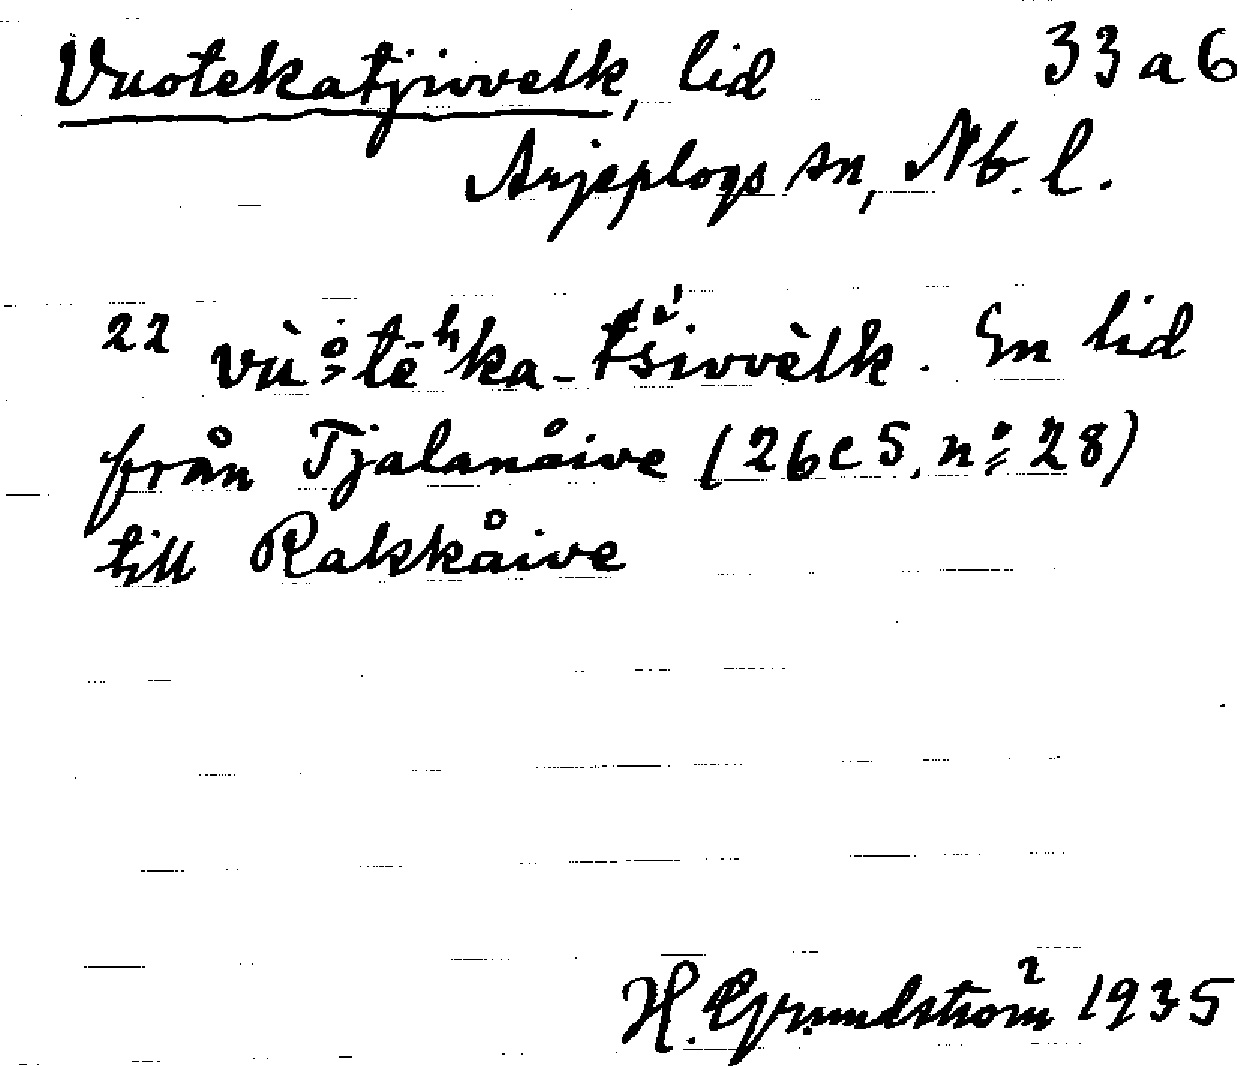 Vuotekatjivvelk, lid 33 a 6
Arjeplogs sn, Nb. l.
22 vù:tēʰka-tšivvèlk. En lid
från Tjalanåive (26 c 5, n:o 28)
till Rakkåive
H. Grundström 1935